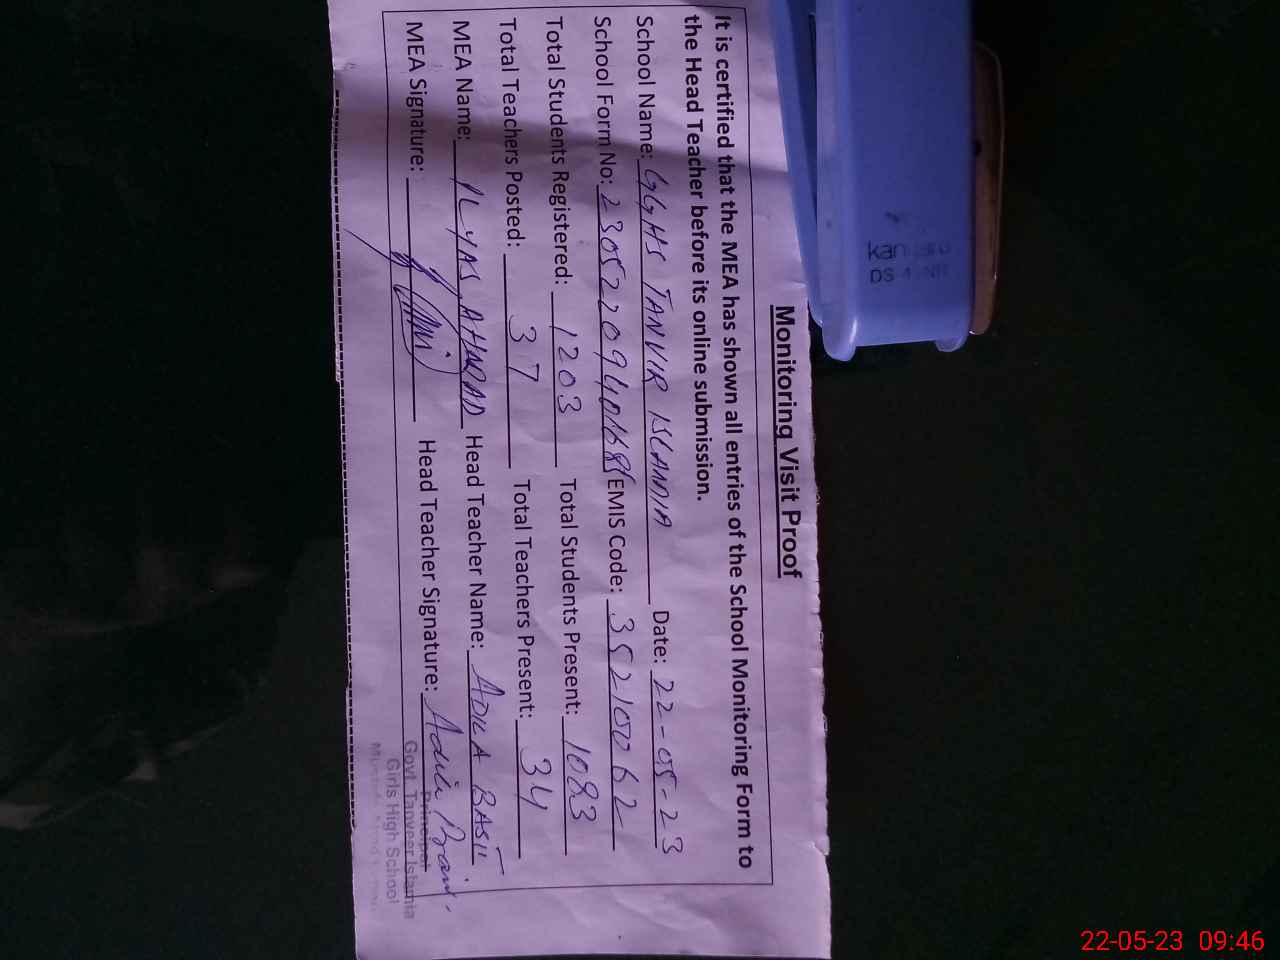 Monitoring Visit Proof
It is certified that the MEA has shown all entries of the School Monitoring Form to
the Head Teacher before its online submission.
School Name: GGHS TANVIR ISLAMIA Date: 22-05-23
School Form No: EMIS Code: 35210062
Total Students Registered: 1203 Total Students Present: 1083
Total Teachers Posted: 37 Total Teachers Present: 34
MEA Name: ILYAS AHMAD Head Teacher Name: ADILA BASIT
MEA Signature: Head Teacher Signature: Adila
Principal
Govt. Tanveer Islamia
Girls High School
DS
22-05-23 09:46